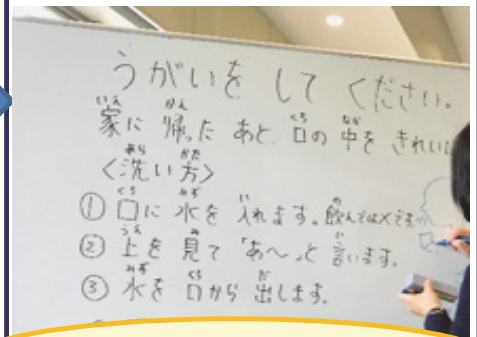 うがいを して ください。
家に 帰った あと 口の 中を きれいに
<洗い方>
① 口に 水を 入れます。飲んでは×です
② 上を 見て「あ〜」と 言います。
③ 水を 口から 出します。